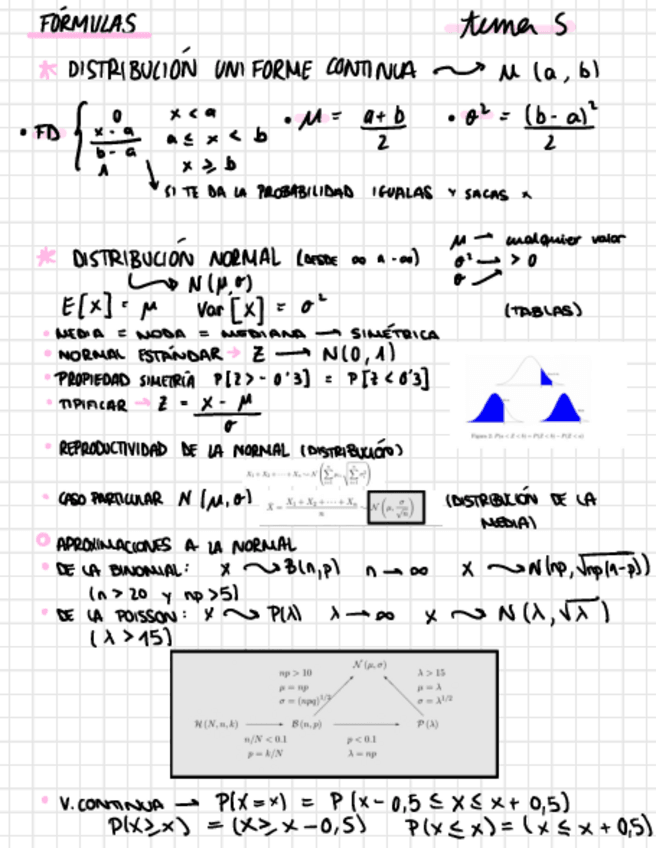 FÓRMULAS
tema 5
* DISTRIBUCIÓN UNIFORME CONTINUA ⟿ μ (a, b)
• FD { 0 x < a
x - a / b - a a ≤ x < b
1 x ≥ b
• μ = a + b / 2
• σ² = (b - a)² / 2
↘ SI TE DA LA PROBABILIDAD IGUALAS Y SACAS x
* DISTRIBUCIÓN NORMAL (DESDE ∞ A -∞)
↳ N(μ, σ)
μ → cualquier valor
σ² → > 0
σ ↗
(TABLAS)
E[X] = μ Var[X] = σ²
• MEDIA = MODA = MEDIANA → SIMÉTRICA
• NORMAL ESTÁNDAR → Z → N(0, 1)
• PROPIEDAD SIMETRÍA P[Z > - 0'3] = P[Z < 0'3]
• TIPIFICAR → Z = X - μ / σ
• REPRODUCTIVIDAD DE LA NORMAL (DISTRIBUCIÓN)
• CASO PARTICULAR N(μ, σ)
X̄ = X₁ + X₂ + ··· + Xₙ / n ~ N(μ, σ/√n)
(DISTRIBUCIÓN DE LA MEDIA)
○ APROXIMACIONES A LA NORMAL
• DE LA BINOMIAL: X ⟿ B(n,p) n → ∞ X ⟿ N(np, √np(1-p))
(n > 20 y np > 5)
• DE LA POISSON: X ⟿ P(λ) λ → ∞ X ⟿ N(λ, √λ)
(λ > 15)
N(μ, σ)
np > 10
μ = np
σ = (npq)^1/2
λ > 15
μ = λ
σ = λ^1/2
H(N, n, k) → B(n, p) → P(λ)
n/N < 0.1
p = k/N
p < 0.1
λ = np
• V. CONTINUA → P(X = x) = P(x - 0,5 ≤ X ≤ x + 0,5)
P(X ≥ x) = (X ≥ x - 0,5) P(X ≤ x) = (X ≤ x + 0,5)